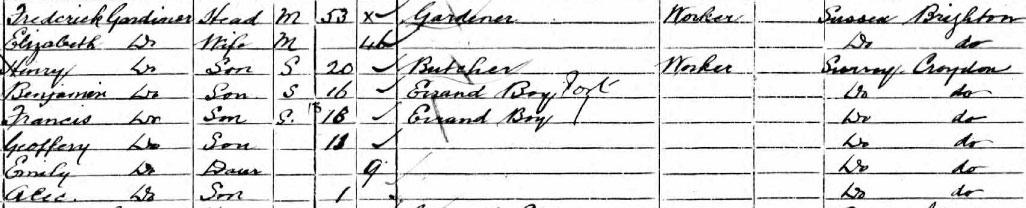 Frederick Gardiner Head M 53 x Gardener Worker Sussex Brighton
Elizabeth Do Wife M 46 Do do
Henry Do Son S 20 Butcher Worker Surrey Croydon
Benjamin Do Son S 16 Errand Boy Do do
Francis Do Son S. Errand Boy Do do
Geoffery Do Son 11 Do do
Emily Do Daur 9 Do do
Alec. Do Son 1 Do do